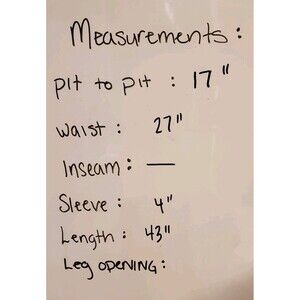 Measurements:
pit to pit : 17"
waist : 27"
Inseam: —
Sleeve : 4"
Length : 43"
Leg opening :